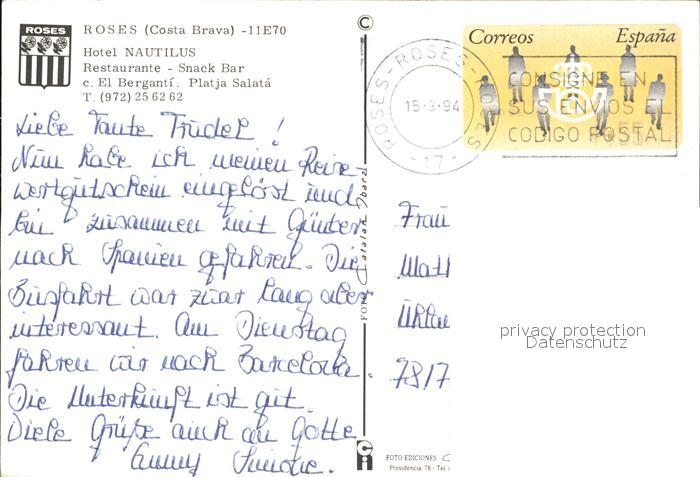 ROSES
ROSES (Costa Brava) -11E70
Hotel NAUTILUS
Restaurante - Snack Bar
c. El Bergantí. Platja Salatá
T. (972) 25 62 62
Liebe Tante Trudel!
Nun habe ich meinen Reise-
wertgutschein eingelöst und
bin zusammen mit Günter
nach Spanien gefahren. Die
Busfahrt war zwar lang aber
interessant. Am Dienstag
fahren wir nach Barcelona.
Die Unterkunft ist gut.
Viele Grüße auch an Gotte
Correos España
ROSES-ROSES-ROSES
15-3-94
-17-
CONSIGNE EN
SUS ENVIOS EL
CODIGO POSTAL
Frau
7817
privacy protection
Datenschutz
FOTO EDICIONES C
Providencia 78 - Tel